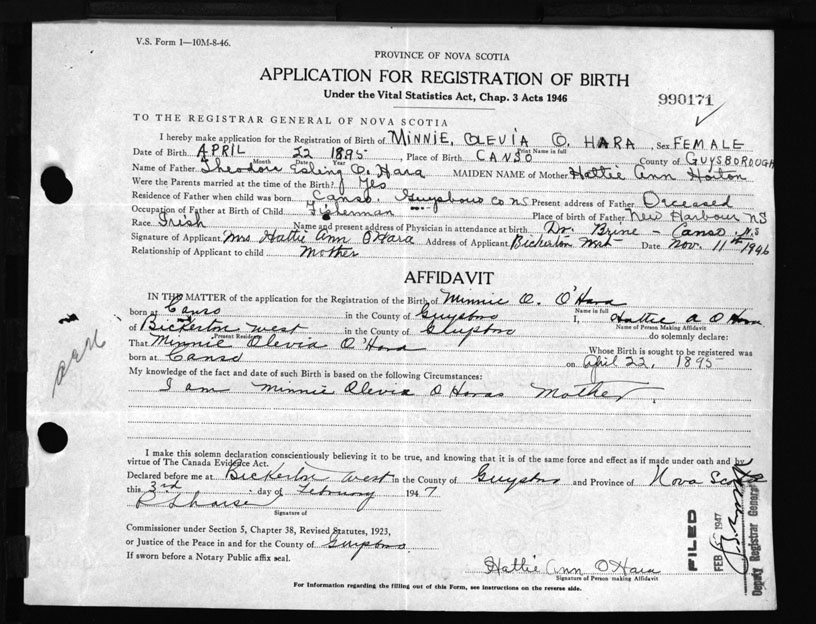 V.S. Form 1—10M-8-46.
PROVINCE OF NOVA SCOTIA
APPLICATION FOR REGISTRATION OF BIRTH
Under the Vital Statistics Act, Chap. 3 Acts 1946
990171
TO THE REGISTRAR GENERAL OF NOVA SCOTIA
I hereby make application for the Registration of Birth of MINNIE, OLEVIA O. HARA, Sex FEMALE
Print Name in full
Date of Birth APRIL 22 1895, Place of Birth CANSO County of GUYSBOROUGH
Month Date Year
Name of Father Theodore Esling O. Hara MAIDEN NAME of Mother Hattie Ann Horton
Were the Parents married at the time of the Birth? Yes
Residence of Father when child was born Canso. Guysboro Co NS Present address of Father Deceased
Occupation of Father at Birth of Child Fisherman Place of birth of Father New Harbour NS
Race Irish Name and present address of Physician in attendance at birth Dr. Brine - Canso N.S
Signature of Applicant Mrs Hattie Ann O'Hara Address of Applicant Bickerton West Date Nov. 11th 1946
Relationship of Applicant to child Mother
AFFIDAVIT
IN THE MATTER of the application for the Registration of the Birth of Minnie O. O'Hara
Name in full
born at Canso in the County of Guysboro I, Hattie A O Hara
Name of Person Making Affidavit
of Bickerton West in the County of Guysboro do solemnly declare:
Present Residence
That Minnie Olevia O'Hara Whose Birth is sought to be registered was
born at Canso on April 22, 1895
My knowledge of the fact and date of such Birth is based on the following Circumstances:
I am Minnie Olevia O Haras Mother.
I make this solemn declaration conscientiously believing it to be true, and knowing that it is of the same force and effect as if made under oath and by
virtue of The Canada Evidence Act.
Declared before me at Bickerton West in the County of Guysboro and Province of Nova Scotia
this 3rd day of February 1947
Signature of
Commissioner under Section 5, Chapter 38, Revised Statutes, 1923,
or Justice of the Peace in and for the County of Guysboro
If sworn before a Notary Public affix seal.
Hattie Ann O Hara
Signature of Person making Affidavit
For Information regarding the filling out of this Form, see instructions on the reverse side.
FILED
FEB 1947
Deputy Registrar General